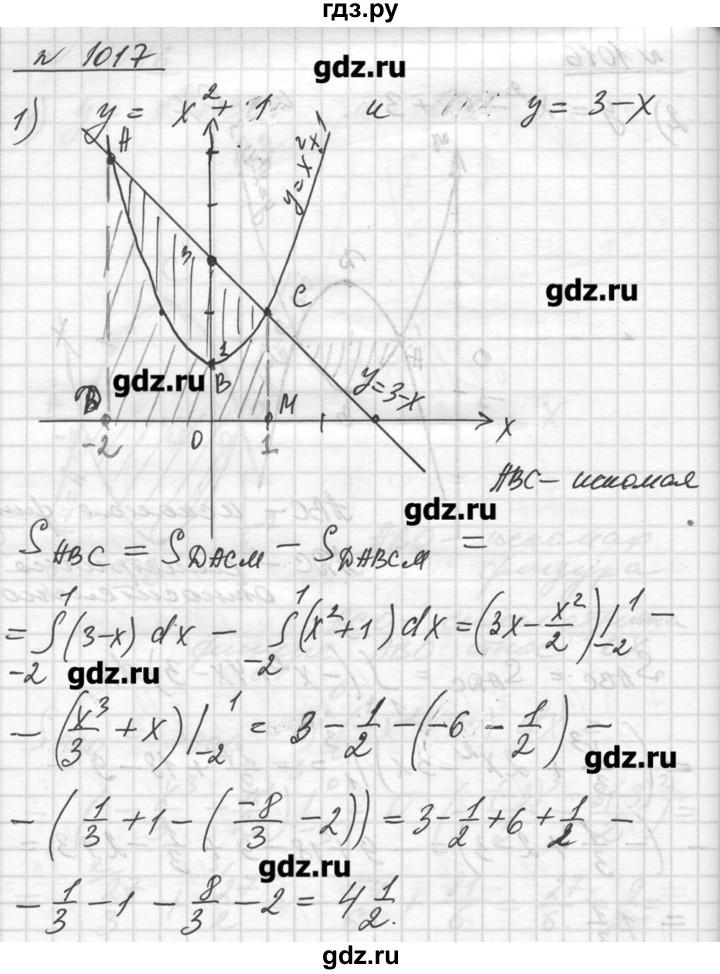 гдз.ру
n 1017
gdz.ru
1) y = x² + 1 и y = 3 - x
A
y = x²+1
3
C
gdz.ru
1
B
y = 3 - x
gdz.ru
D
M
-2 0 1 x
ABC - искомая
gdz.ru
S ABC = S DACM - S DABCM =
= ∫₋₂¹ (3-x) dx - ∫₋₂¹ (x²+1) dx = (3x - x²/2) |₋₂¹ -
gdz.ru
- (x³/3 + x) |₋₂¹ = 3 - 1/2 - (-6 - 1/2) -
gdz.ru
- (1/3 + 1 - (-8/3 - 2)) = 3 - 1/2 + 6 + 1/2 -
gdz.ru
- 1/3 - 1 - 8/3 - 2 = 4 1/2.
gdz.ru